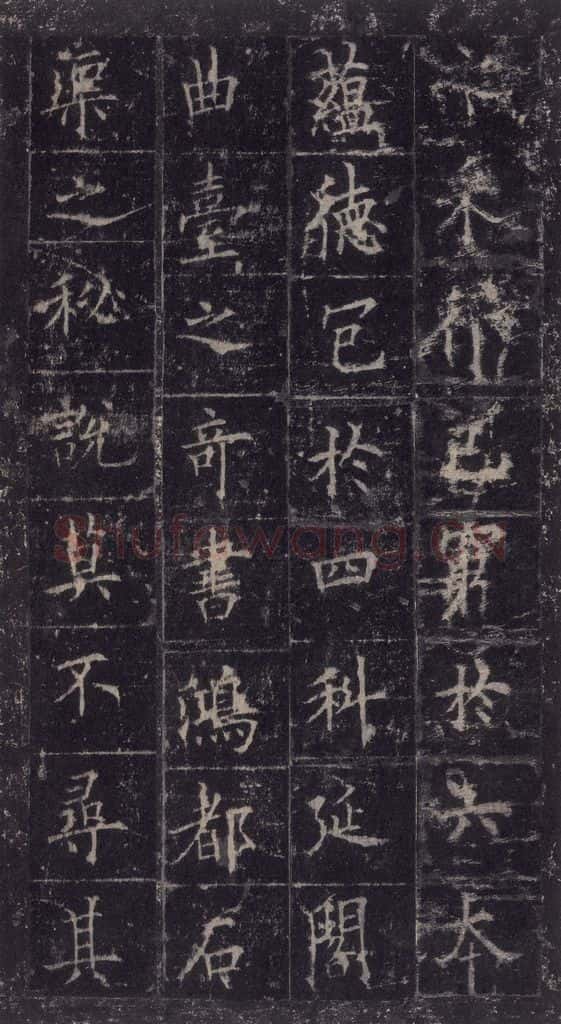 已於六本
蘊德於四科延閣
曲臺之奇書鴻都石
渠之秘說莫不尋其
Shufawang.cn